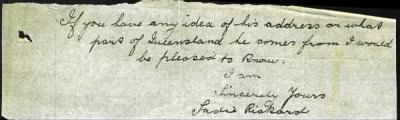 If you have any idea of his address or what
part of Queensland he comes from I would
be pleased to know.
I am
Sincerely Yours
Sadie Rickard